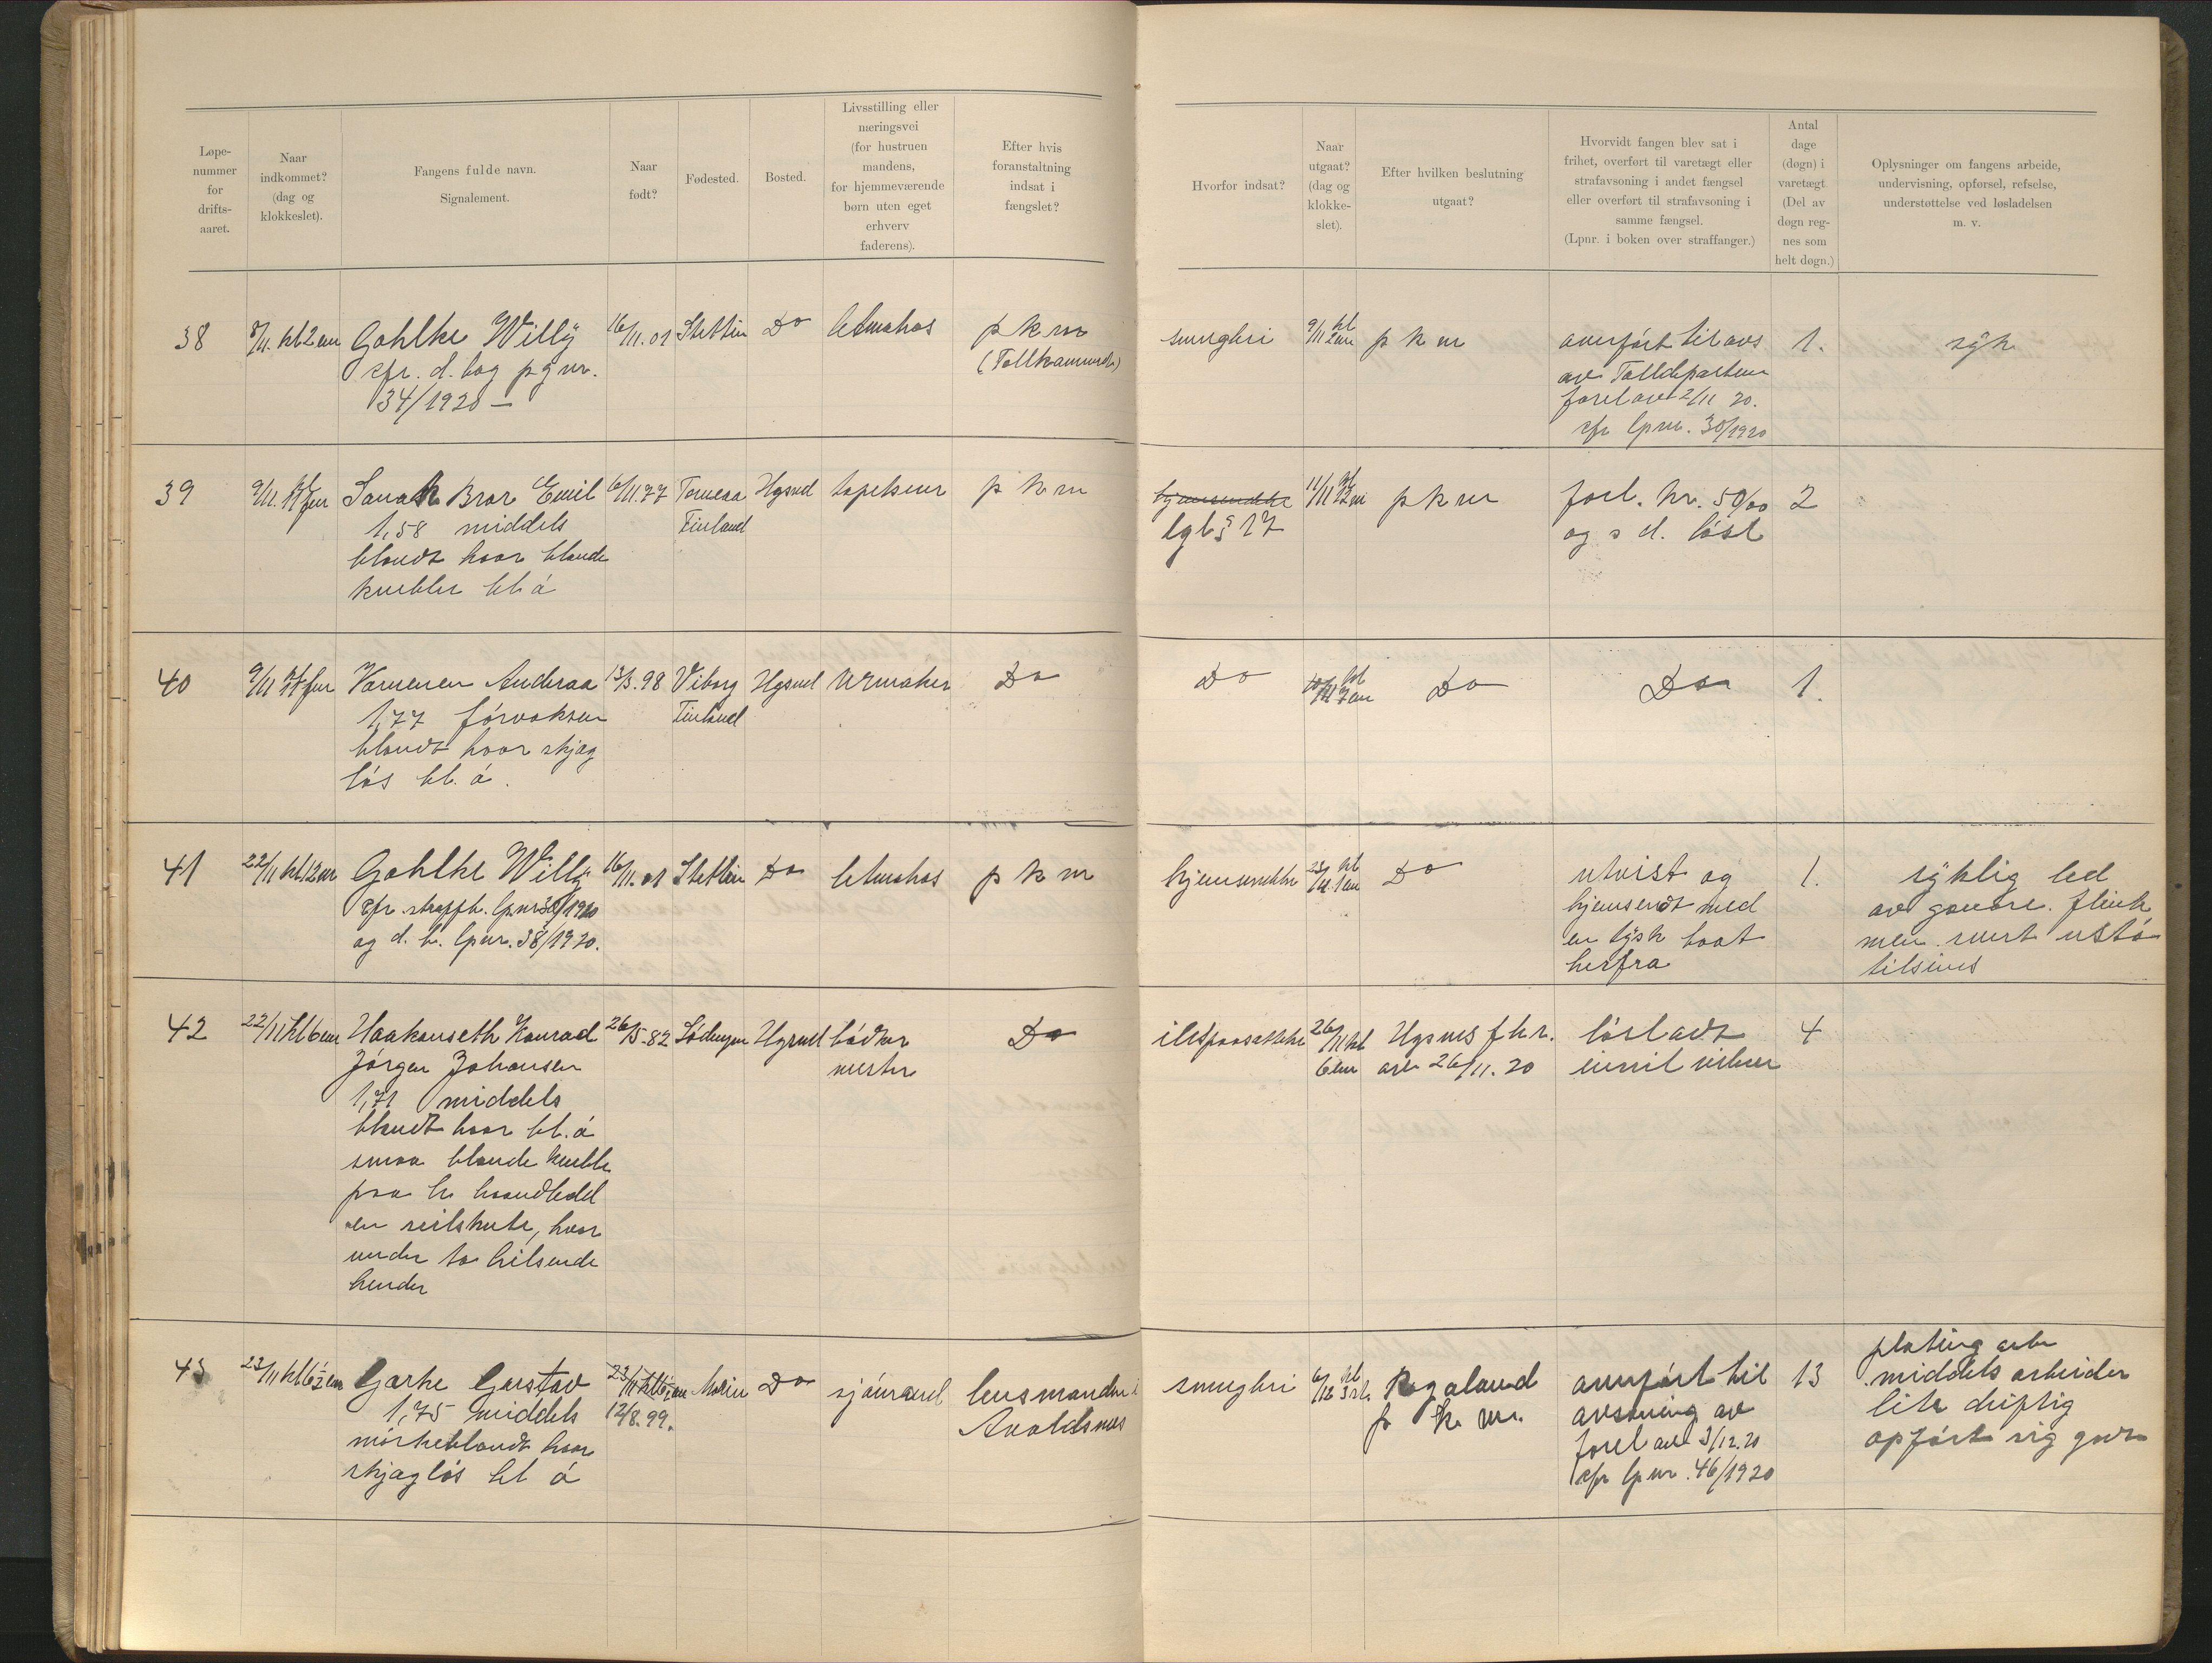 Løpe-
nummer
for
drifts-
aaret.
Naar
indkommet?
(dag og
klokkeslet).
Fangens fulde navn.
Signalement.
Naar
født?
Fødested.
Bosted.
Livsstilling eller
næringsvei
(for hustruen
mandens,
for hjemmeværende
børn uten eget
erhverv
faderens).
Efter hvis
foranstaltning
indsat i
fængslet?
Hvorfor indsat?
Naar
utgaat?
(dag og
klokke-
slet).
Efter hvilken beslutning
utgaat?
Hvorvidt fangen blev sat i
frihet, overført til varetægt eller
strafavsoning i andet fængsel
eller overført til strafavsoning i
samme fængsel.
(Lpnr. i boken over straffanger.)
Antal
dage
(døgn) i
varetægt
(Del av
døgn reg-
nes som
helt døgn.)
Oplysninger om fangens arbeide,
undervisning, opførsel, refselse,
understøttelse ved løsladelsen
m. v.
38
8/11. kl 2 em
Gohlke Willy
cfr. d. bog pg nr.
34/1920 —
16/11.01
Stettin
Do
letmatros
p k m
(Tollkammeret)
smugleri
9/11 kl 2 em
p k m
overført til avs
av Tolldepartem
forel av 2/11 20.
cfr lpnr. 30/1920
1.
syk
39
9/11. kl
Sanak Bror Emil
1,58 middels
blondt haar blonde
knebler bl. ö
6/11.77
Torneaa
Finland
Hgsund
tapetserer
p k m
lgb § 17
11/11 kl 12 m
p k m
forl. kr. 50/00
og s d. løsl
2
40
9/11 kl fm
Andreaa
1,77 førvoksen
blondt haar skjæg
løs bl. ö.
12/5.98
Viborg
Finland
Hgsund
urmaker
Do
Do
kl
Do
Do
1.
41
22/11 kl 12 m
Gohlke Willy
cfr. straffb. lpnr 30/1920
og d. b. lpnr. 38/1920.
16/11.01
Stettin
Do
letmatros
p k m
hjemsendelse
23/11 kl 1 em
Do
utvist og
hjemsendt med
en tysk baat
herfra
1.
syklig led
av gonore. flink
men surt ustö
tilsins
42
22/11 kl 6 em
Haakonseth Konrad
Jørgen Johansen
1,71 middels
blondt haar bl. ö
smaa blonde kneble
paa h. haandledd
en seilskute, hvor
under to hilsende
hender
26/5-82
Lødingen
Hgsund
bødker
mester
Do
ildspaasættelse
26/11 kl
6 em
Hgsunds f h r.
av 26/11. 20
løsladt
inntil videre
4
43
23/11 kl 6½ em
Garke Gustav
1,75 middels
mörkeblondt haar
skjægløs bl ö
23/11 kl 6½ em
12/8.99.
Do
sjömand
lensmanden i
Avaldsnes
smugleri
6/12 kl
Rogaland
p k m.
overført til
avsoning av
forel av 3/12.20
cfr lpnr. 46/1920
13
plating arb
middels arbeider
lite driftig
opført sig godt